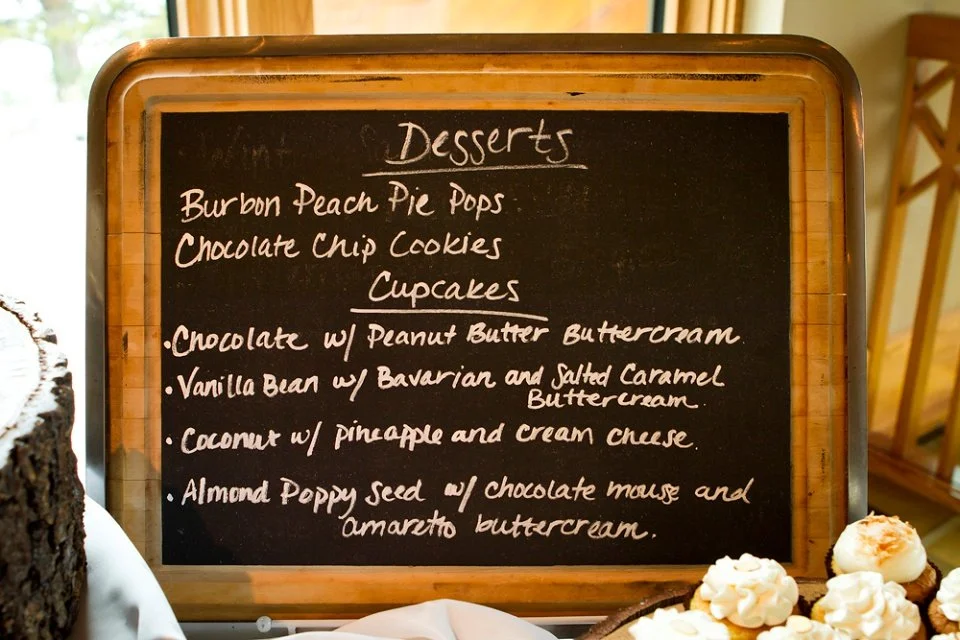 Desserts
Burbon Peach Pie Pops
Chocolate Chip Cookies
Cupcakes
•Chocolate w/ Peanut Butter Buttercream
•Vanilla Bean w/ Bavarian and Salted Caramel
Buttercream.
•Coconut w/ pineapple and cream cheese.
•Almond Poppy seed w/ chocolate mouse and
amaretto buttercream.